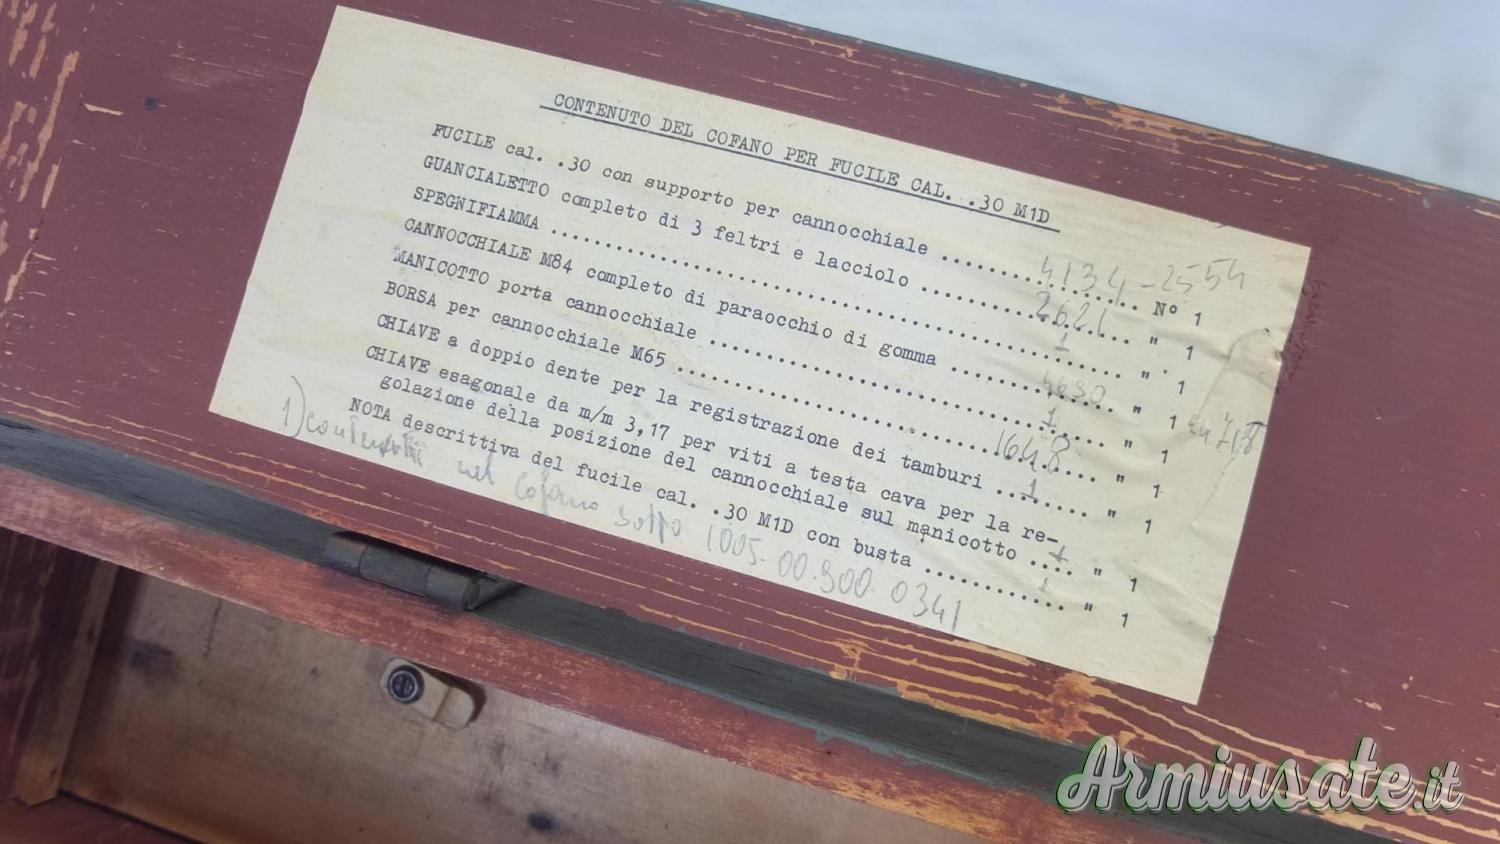 CONTENUTO DEL COFANO PER FUCILE CAL. .30 M1D
FUCILE cal. .30 con supporto per cannocchiale .......... Nº 1
4134-2554
GUANCIALETTO completo di 3 feltri e lacciolo .......... " 1
2621
SPEGNIFIAMMA .......... " 1
1
CANNOCCHIALE M84 completo di paraocchio di gomma .......... " 1
4630
MANICOTTO porta cannocchiale .......... " 1
1
BORSA per cannocchiale M65 .......... " 1
1648
CHIAVE a doppio dente per la registrazione dei tamburi .......... " 1
1
CHIAVE esagonale da m/m 3,17 per viti a testa cava per la re-
golazione della posizione del cannocchiale sul manicotto .... " 1
1
NOTA descrittiva del fucile cal. .30 M1D con busta .......... " 1
1
1) contenuti nel cofano sotto 1005.00.900.0341
Armiusate.it